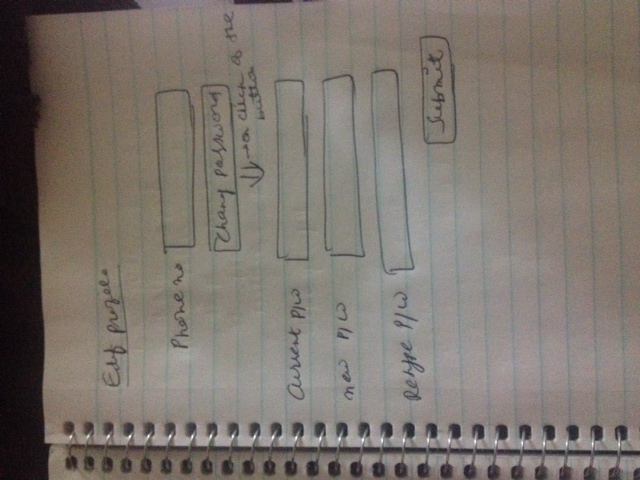 Edit profile
Phone no
Chang password
→ on click of the
button
Current P/W
new P/W
Retype P/W
Submit